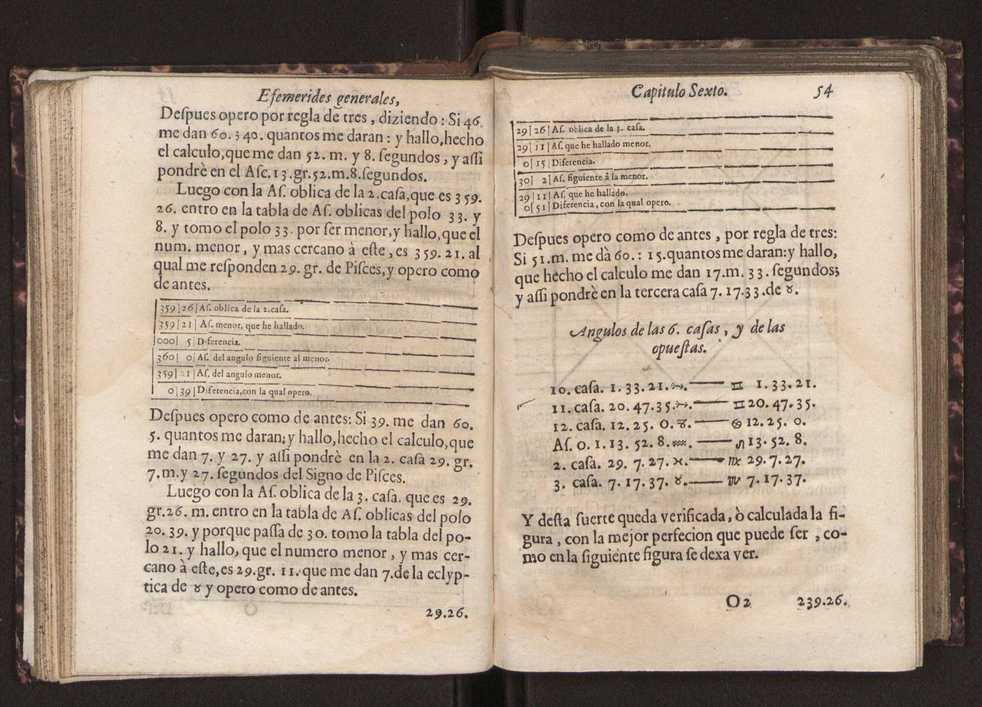 Efemerides generales,
Despues opero por regla de tres, diziendo: Si 46.
me dan 60. 340. quantos me daran: y hallo, hecho
el calculo, que me dan 52. m. y 8. segundos, y assi
pondrè en el Asc. 13. gr. 52. m. 8. segundos.
Luego con la As. oblica de la 2. casa, que es 359.
26. entro en la tabla de As. oblicas del polo 33. y
8. y tomo el polo 33. por ser menor, y hallo, que el
num. menor, y mas cercano à este, es 359. 21. al
qual me responden 29. gr. de Pisces, y opero como
de antes.
359 | 26 | As. oblica de la 2. casa.
359 | 21 | As. menor, que he hallado.
000 | 5 | Diferencia.
360 | 0 | As. del angulo siguiente al menor.
359 | 21 | As. del angulo menor.
0 | 39 | Diferencia, con la qual opero.
Despues opero como de antes: Si 39. me dan 60.
5. quantos me daran; y hallo, hecho el calculo, que
me dan 7. y 27. y assi pondrè en la 2. casa 29. gr.
7. m. y 27. segundos del Signo de Pisces.
Luego con la As. oblica de la 3. casa. que es 29.
gr. 26. m. entro en la tabla de As. oblicas del polo
20. 39. y porque passa de 30. tomo la tabla del po-
lo 21. y hallo, que el numero menor, y mas cer-
cano à este, es 29. gr. 11. que me dan 7. de la eclyp-
tica de ♉ y opero como de antes.
29.26.
Capitulo Sexto. 54
29 | 26 | As. oblica de la 3. casa.
29 | 11 | As. que he hallado menor.
0 | 15 | Diferencia.
30 | 2 | As. siguiente à la menor.
29 | 11 | As. que he hallado.
0 | 51 | Diferencia, con la qual opero.
Despues opero como de antes, por regla de tres:
Si 51. m. me dà 60.: 15. quantos me daran: y hallo,
que hecho el calculo me dan 17. m. 33. segundos;
y assi pondrè en la tercera casa 7. 17. 33. de ♉.
Angulos de las 6. casas, y de las
opuestas.
10. casa. 1. 33. 21. ♐. — ♊ 1. 33. 21.
11. casa. 20. 47. 35. ♐. — ♊ 20. 47. 35.
12. casa. 12. 25. 0. ♑. — ♋ 12. 25. 0.
As. 0. 1. 13. 52. 8. ♒. — ♌ 13. 52. 8.
2. casa. 29. 7. 27. ♓. — ♍ 29. 7. 27.
3. casa. 7. 17. 37. ♉. — ♏ 7. 17. 37.
Y desta suerte queda verificada, ò calculada la fi-
gura, con la mejor perfecion que puede ser, co-
mo en la siguiente figura se dexa ver.
O2 239.26.